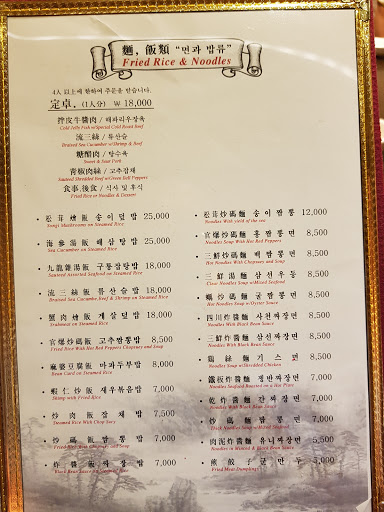 麵, 飯類 "면과 밥류"
Fried Rice & Noodles
4人 以上에 한하여 주문을 받습니다.
定卓, (1人分) ₩ 18,000
拌皮牛醬肉 / 해파리우장육
Cold Jelly Fish w/Special Cold Roast Beef
流三絲 / 류산슬
Braised Sea Cucumber w/Shrimp & Beef
糖醋肉 / 탕수육
Sweet & Sour Pork
靑椒肉絲 / 고추잡채
Sauteed Shredded Beef w/Green Bell Peppers
食事, 後食 / 식사 및 후식
Fried Rice or Noodles & Dessert
• 松茸燴飯 송이덮밥 25,000
Songi Mushrooms on Steamed Rice
• 海蔘湯飯 해삼탕밥 25,000
Sea Cucumber on Steamed Rice
• 九龍雜湯飯 구룡잡탕밥 18,000
Sauteed Assorted Seafood on Steamed Rice
• 流三絲飯 류산슬밥 18,000
Braised Sea Cucumber, Beef & Shrimp on Steamed Rice
• 蟹肉燴飯 게살덮밥 18,000
Crabmeat on Steamed Rice
• 官爆炒碼飯 고추짬뽕밥 8,500
Fried Rice With Hot Red Peppers Chopsuey and Soup
• 麻婆豆腐飯 마파두부밥 8,000
Bean Curd on Steamed Rice
• 蝦仁炒飯 새우볶음밥 7,000
Shimp with Fried Rice
• 炒肉飯 잡채밥 7,500
Steamed Rice With Chop Suey
• 炒碼飯 짬뽕밥 7,000
• 炸醬飯 짜장밥 7,000
Black Bean Sauce on Steamed Rice
• 松茸炒碼麵 송이짬뽕 12,000
Noodles With
• 官爆炒碼麵 홍짬뽕면 8,500
Noodles Soup With Hot Red Peppers
• 三鮮炒碼麵 백짬뽕면 8,500
Hot Noodles With Chopsuey and Soup
• 三鮮湯麵 삼선우동 8,500
Clear Noodles Soup w/Mixed Seafood
• 蠣炒碼麵 굴짬뽕면 8,500
Noodles Soup w/Oyster Sauce
• 四川炸醬麵 사천짜장면 8,500
Noodles With Black Bean Sauce
• 三鮮炸醬麵 삼선짜장면 8,500
Noodles With Black Bean Sauce
• 鷄絲麵 기스면 8,500
Noodles Soup w/Shredded Chicken
• 鐵板炸醬麵 쟁반짜장면 7,500
Noodles Seafood Roasted on a Hot Plate
• 乾炸醬麵 간짜장면 7,500
Noodles With Black Bean Sauce
• 炒碼麵 짬뽕면 7,000
• 肉泥炸醬麵 유니짜장면 5,500
Noodles in Minced & Black Bean Sauce
• 煎餃子 군만두 5,000
Fried Meat Dumplings